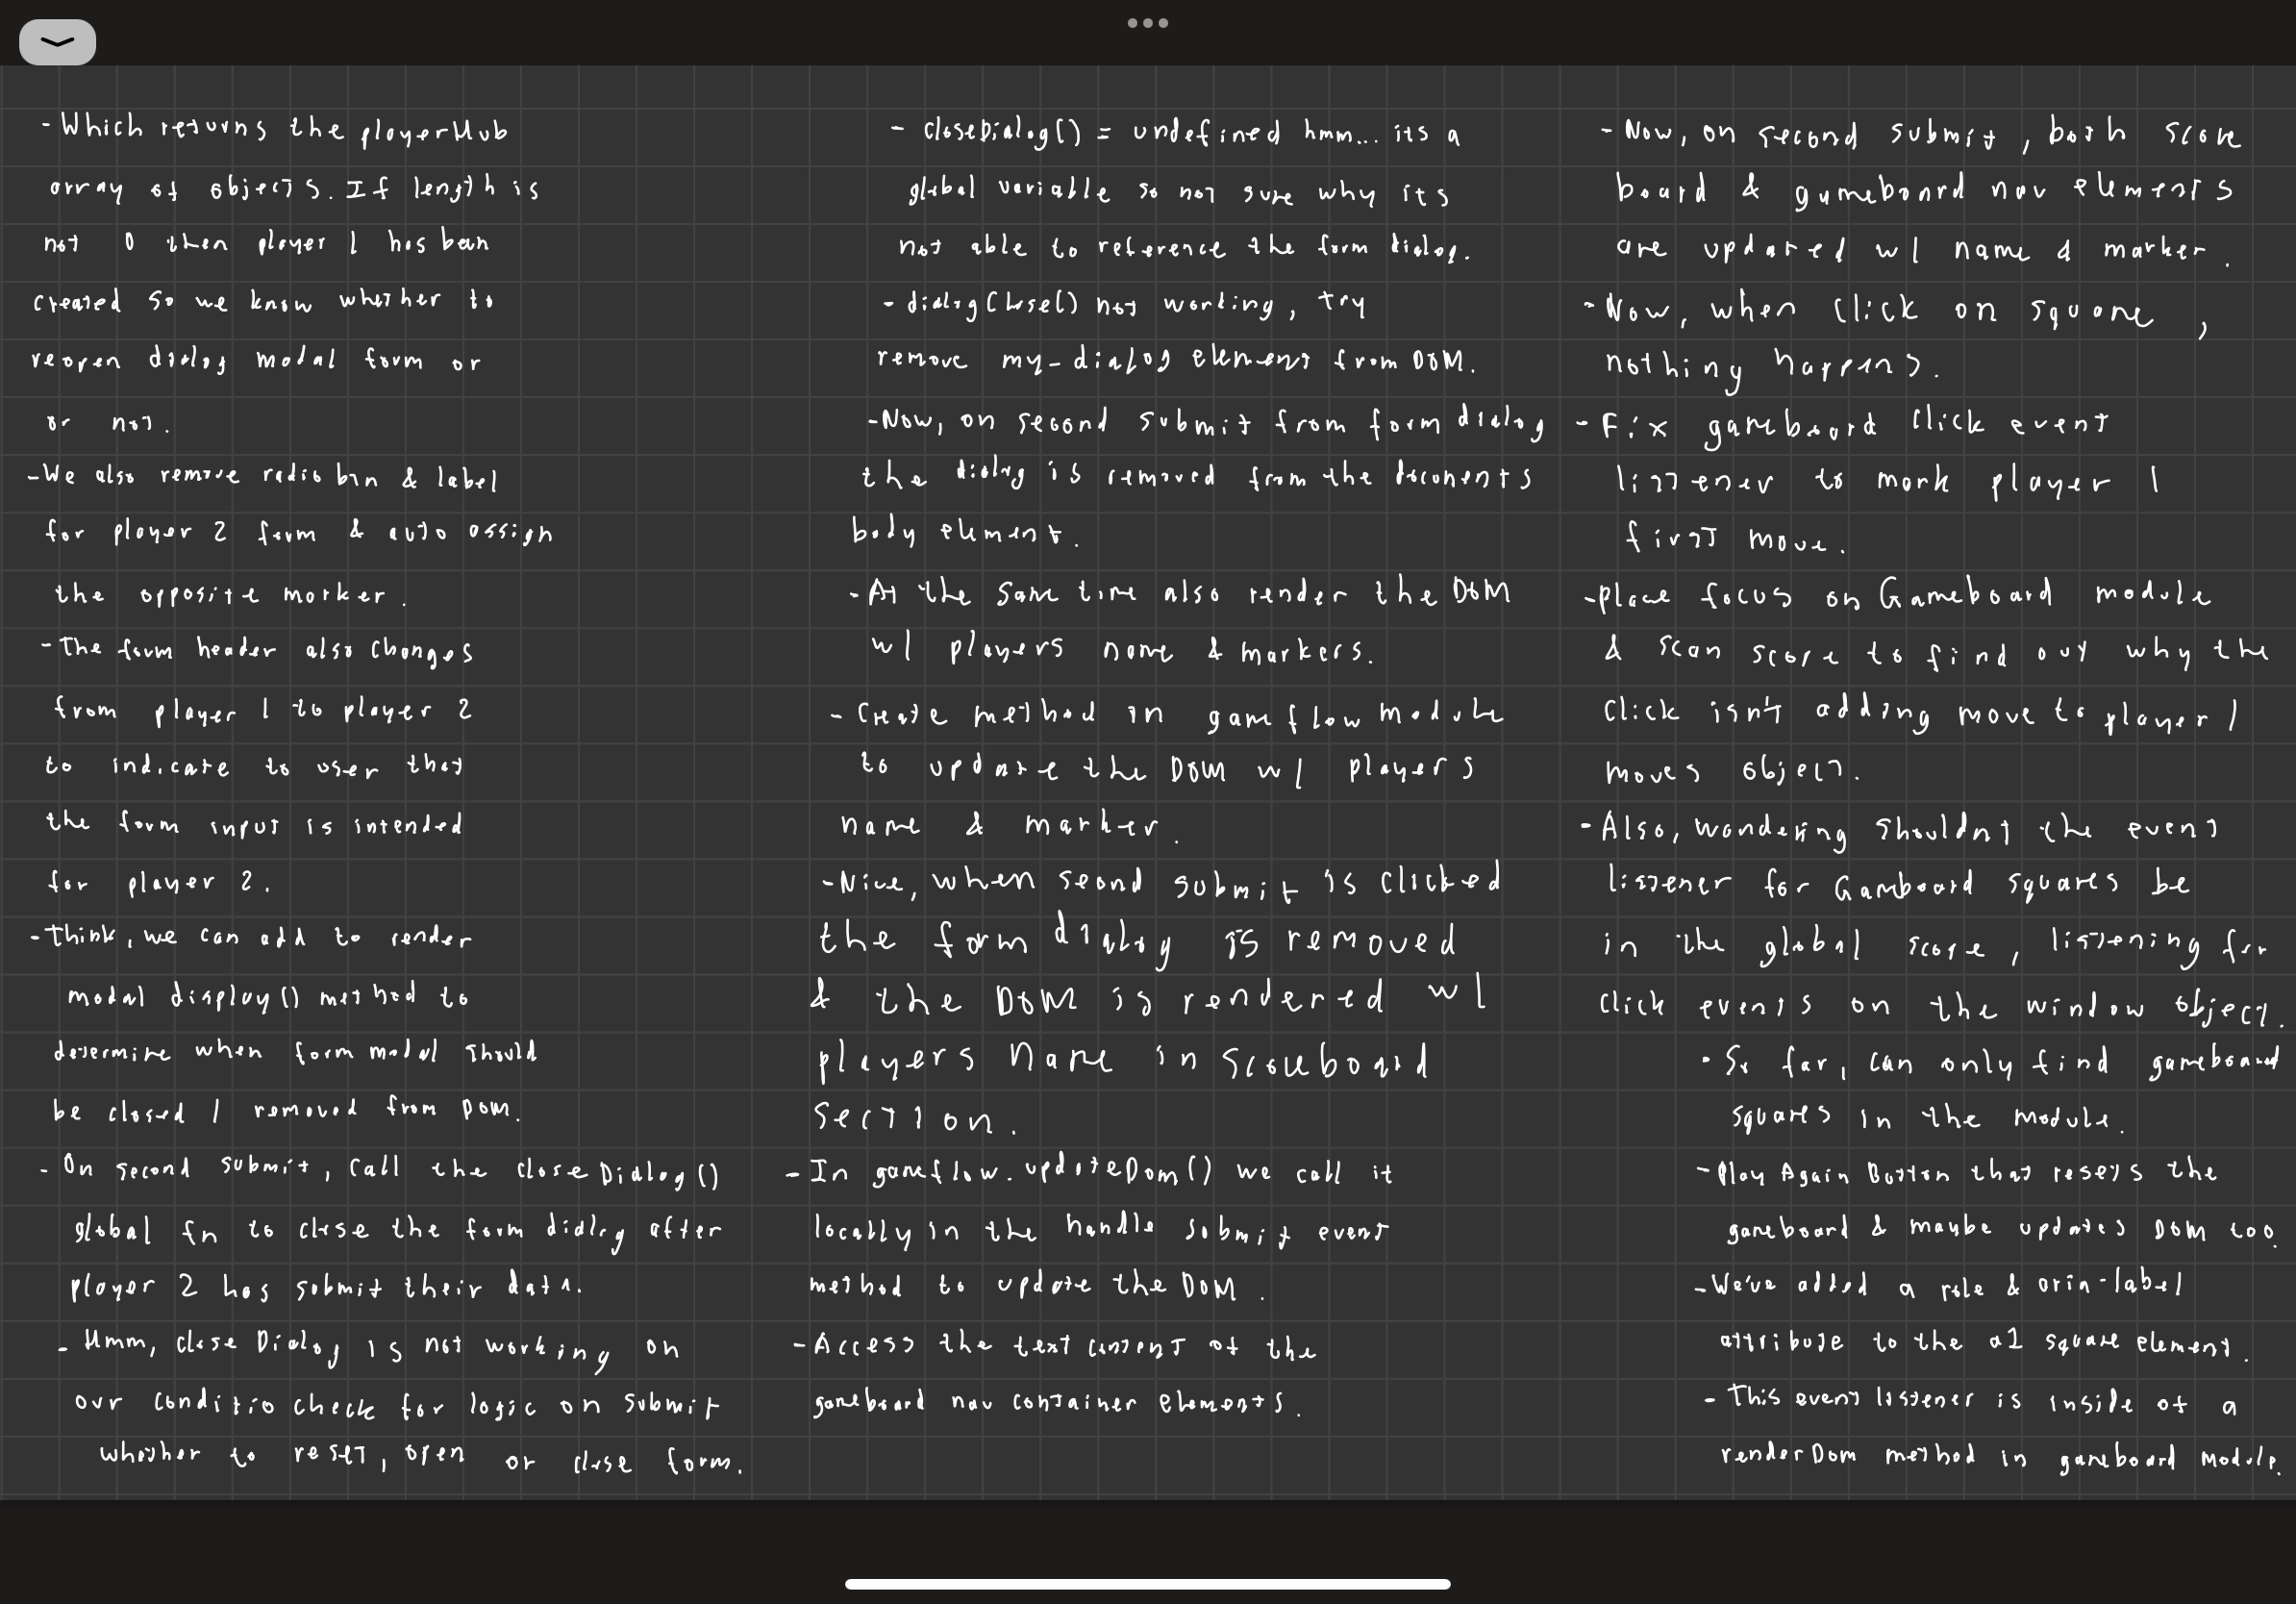 - Which returns the playerHub
array of objects. If length is
not 0 then player 1 has been
created so we know whether to
reopen dialog modal form or
or not.
- We also remove radio btn & label
for player 2 form & auto assign
the opposite marker.
- The form header also changes
from player 1 to player 2
to indicate to user that
the form input is intended
for player 2.
- Think, we can add to render
modal display() method to
determine when form modal should
be closed / removed from DOM.
- On second submit, call the closeDialog()
global fn to close the form dialog after
player 2 has submit their data.
- Hmm, close Dialog is not working on
our conditio check for logic on submit
whether to reset, open or close form.
- closeDialog() = undefined hmm... its a
global variable so not sure why its
not able to reference the form dialog.
- dialogClose() not working, try
remove my-dialog element from DOM.
- Now, on second submit from form dialog
the dialog is removed from the documents
body element.
- At the same time also render the DOM
w/ players name & markers.
- Create method in gameflow module
to update the DOM w/ players
name & marker.
- Nice, when seond submit is clicked
the form dialog is removed
& the DOM is rendered w/
players name in scoreboard
section.
- In gameflow.updateDom() we call it
locally in the handle submit event
method to update the DOM.
- Access the text content of the
gameboard nav container elements.
- Now, on second submit, both score
board & gameboard nav elements
are updated w/ name & marker.
- Now, when click on square,
nothing happens.
- Fix gameboard click event
listener to mark player 1
first move.
- place focus on Gameboard module
& scan scope to find out why the
click isn't adding move to player 1
moves object.
- Also, wondering shouldnt the event
listener for Gameboard squares be
in the global scope, listening for
click events on the window object.
- So far, can only find gameboard
squares in the module.
- Play Again Button that resets the
gameboard & maybe updates DOM too.
- We've added a role & aria-label
attribute to the a1 square element.
- This event listener is inside of a
renderDom method in gameboard module.